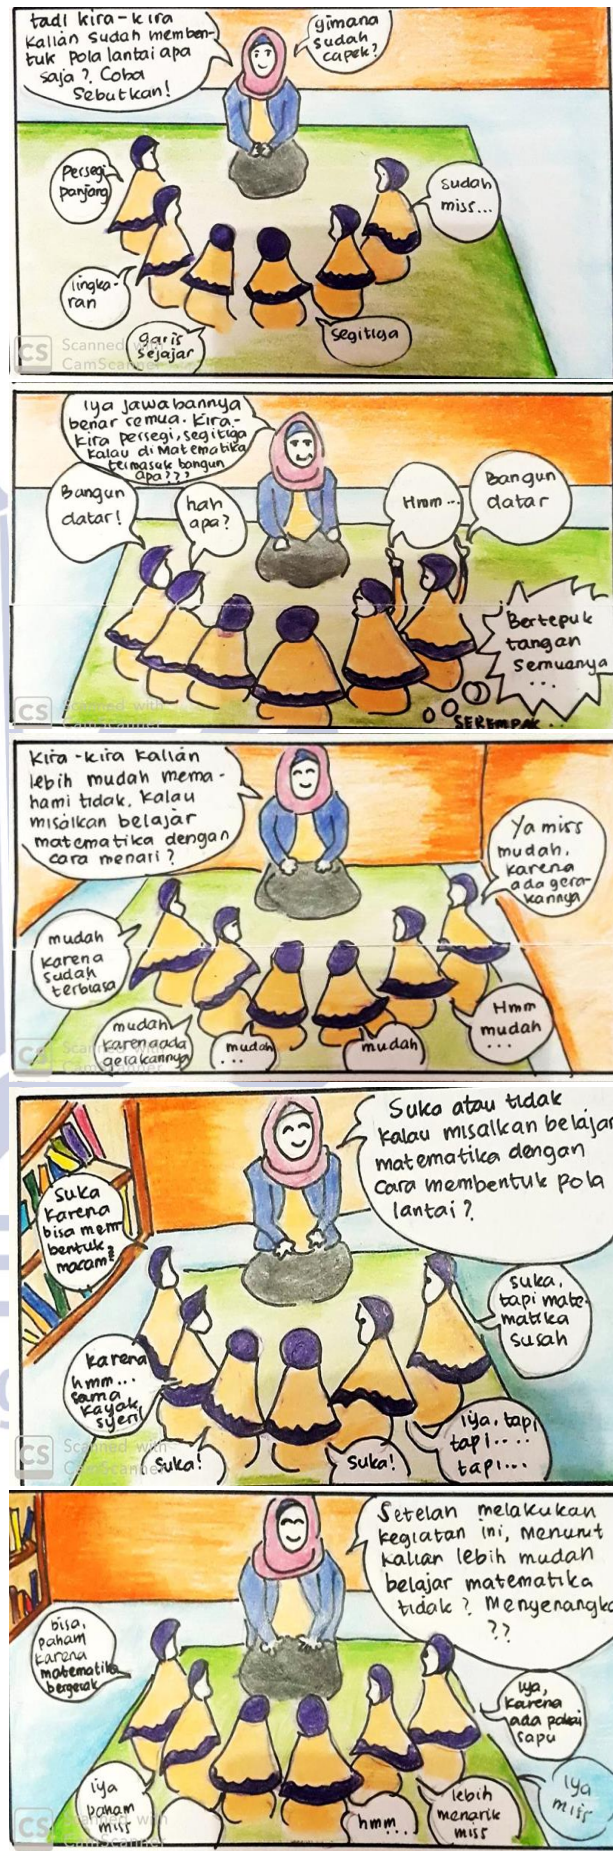 tadi kira-kira
kalian sudah memben-
tuk pola lantai apa
saja? Coba
Sebutkan!
gimana
sudah
capek?
Persegi
panjang
sudah
miss...
lingka-
ran
garis
sejajar
segitiga
CS Scanned with
CamScanner
iya jawabannya
benar semua. Kira-
kira persegi, segitiga
kalau di Matematika
termasuk bangun
apa???
Bangun
datar!
hah
apa?
Hmm...
Bangun
datar
Bertepuk
tangan
semuanya
...
SEREMPAK..
CS Scanned with
CamScanner
Kira-kira Kalian
lebih mudah mema-
hami tidak. Kalau
misalkan belajar
matematika dengan
cara menari?
Ya miss
mudah,
karena
ada gera-
kannya
mudah
karena
sudah
terbiasa
mudah
karena ada
gerakannya
mudah
...
mudah
Hmm
mudah
...
CS Scanned with
CamScanner
Suka atau tidak
kalau misalkan belajar
matematika dengan
cara membentuk pola
lantai?
Suka
karena
bisa mem
bentuk
macam²
suka,
tapi mate-
matika
susah
karena
hmm...
sama
kayak
syeril
Suka!
Suka!
iya, tapi
tapi....
tapi...
CS Scanned with
CamScanner
Setelah melakukan
kegiatan ini, Menurut
kalian lebih mudah
belajar matematika
tidak? Menyenangka
??
bisa,
paham
karena
matematika
bergerak
iya,
karena
ada pakai
sapu
iya
paham
miss
hmm..
lebih
menarik
miss
iya
miss
CS Scanned with
CamScanner